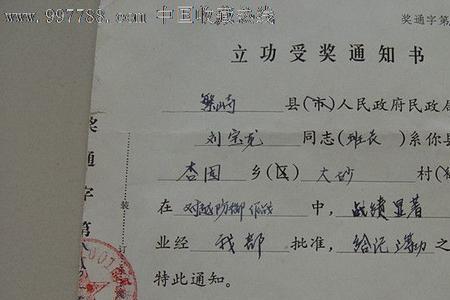 www.997788.com 中国收藏热线
奖通字第
立功受奖通知书
繁峙县(市)人民政府民政局
刘宝龙同志(班长)系你县
杏园乡(区)大砂村(
在对越防御作战中,战绩显著
业经我部批准,给记三等功之
特此通知。
奖通字第
装订